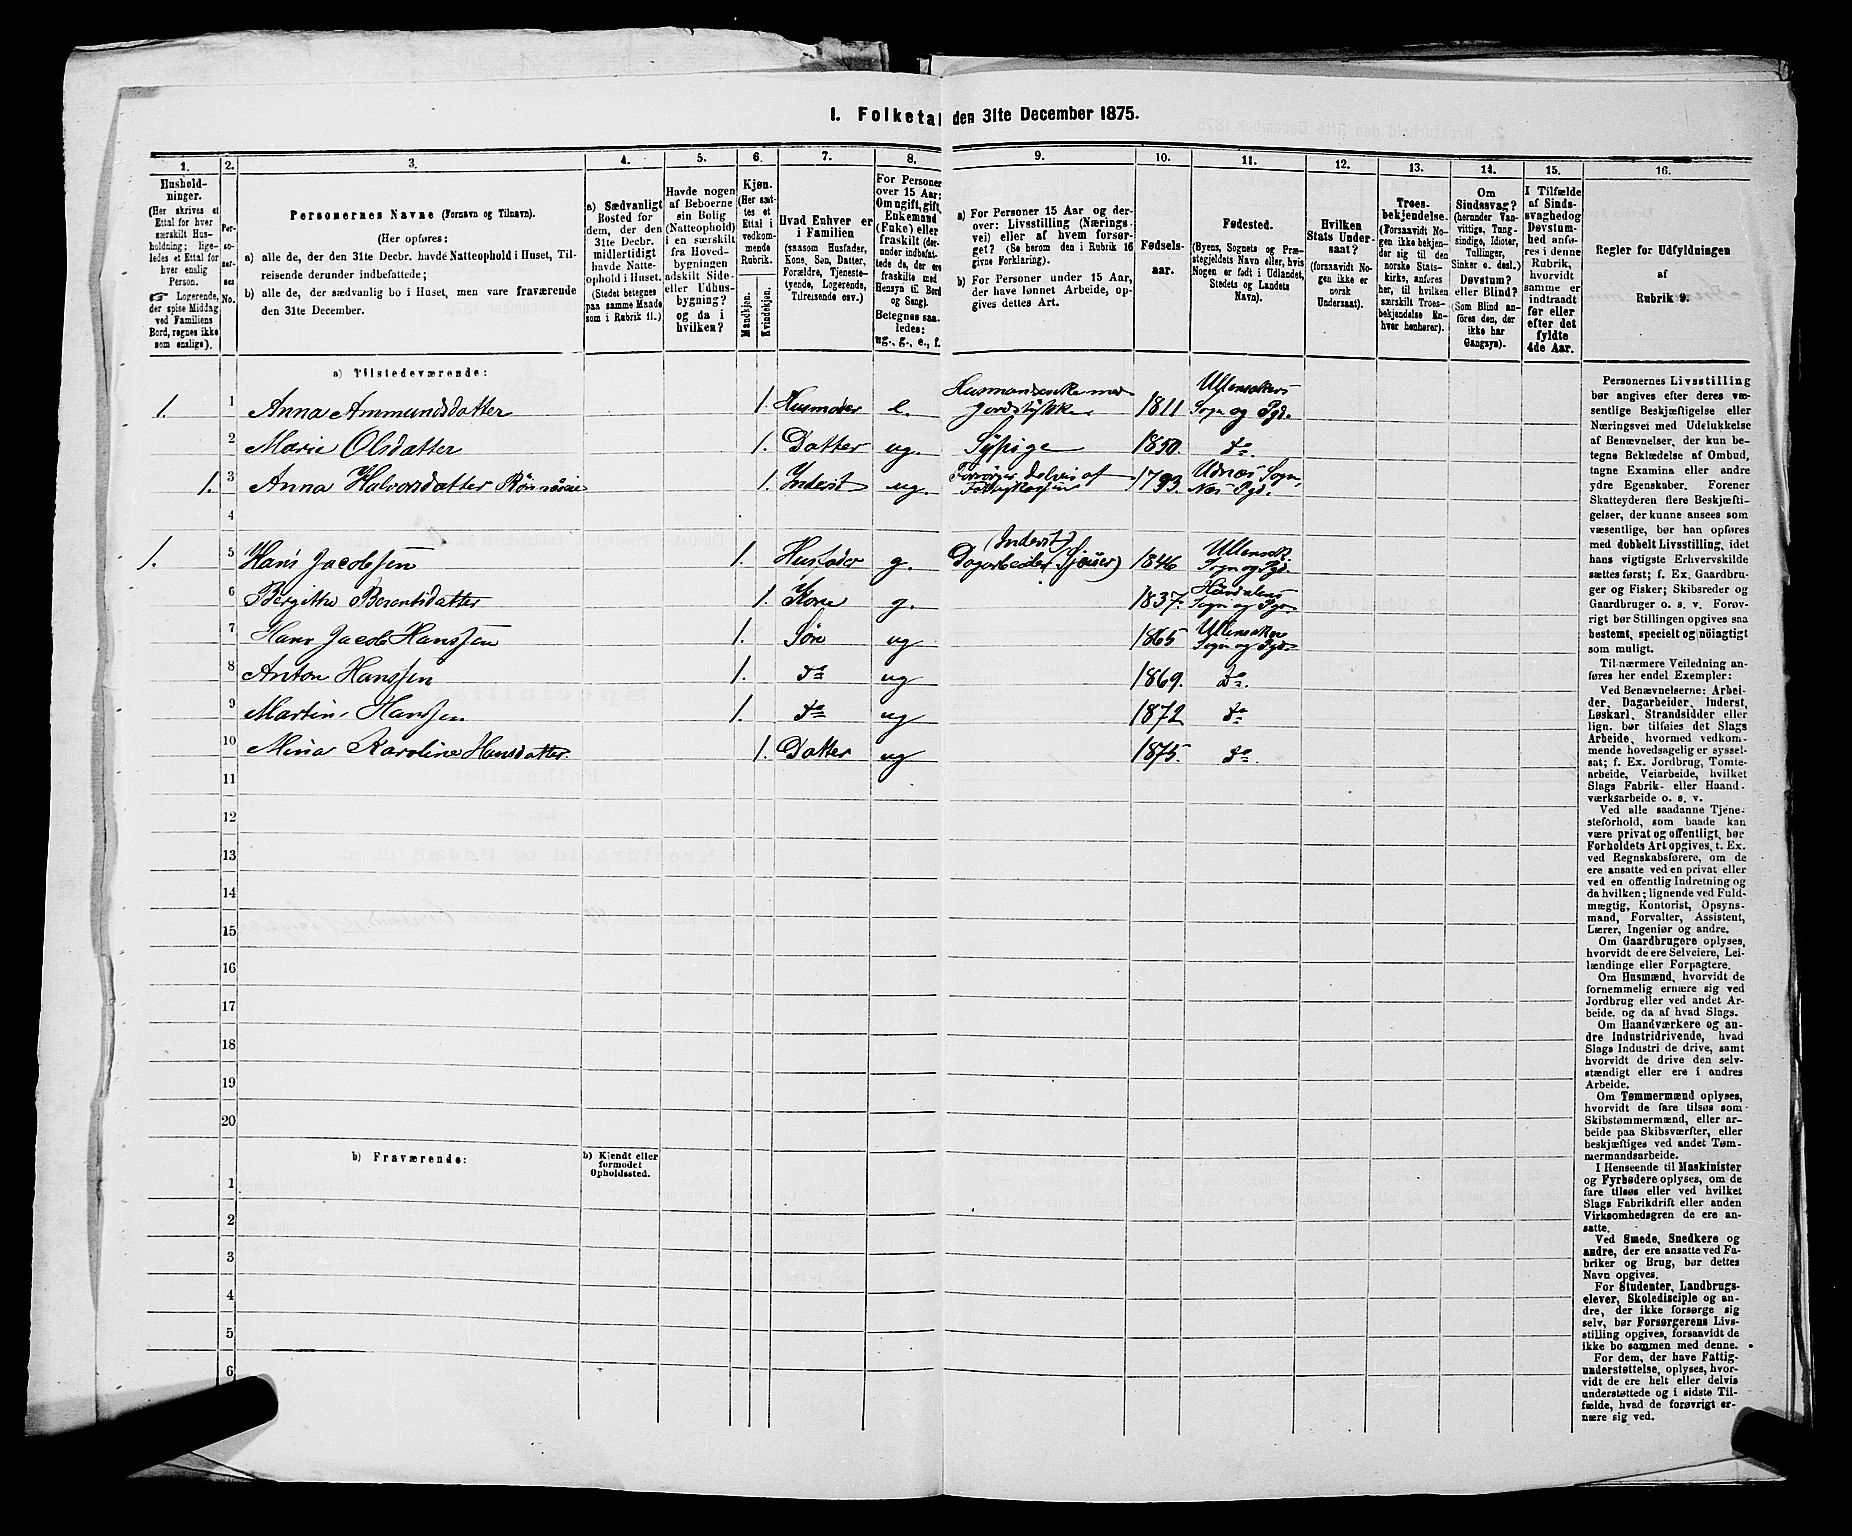 1. Folketal den 31te December 1875.
1. 2. 3. 4. 5. 6. 7. 8. 9. 10. 11. 12. 13. 14. 15. 16.
Hushold-
ninger.
(Her skrives et
Ettal for hver
særskilt Hus-
holdning; lige-
ledes et Ettal for
hver enslig
Person.
☞ Logerende,
der spise Middag
ved Familiens
Bord, regnes ikke
som enslige).
Per-
so-
ner-
nes
No.
Personernes Navne (Fornavn og Tilnavn).
(Her opføres:
a) alle de, der den 31te Decbr. havde Natteophold i Huset, Til-
reisende derunder indbefattede;
b) alle de, der sædvanlig bo i Huset, men vare fraværende
den 31te December.
a) Sædvanligt
Bosted for
dem, der den
31te Decbr.
midlertidigt
havde Natte-
ophold i Huset.
(Stedet betegnes
paa samme Maade
som i Rubrik 11.)
Havde nogen
af Beboerne
sin Bolig
(Natteophold)
i en særskilt
fra Hoved-
bygningen
adskilt Side-
eller Udhus-
bygning?
og da i
hvilken?
Kjøn.
(Her sæt-
tes et
Ettal i
vedkom-
mende
Rubrik.
Mandkjøn.
Kvindekjøn.
Hvad Enhver er
i Familien
(saasom Husfader,
Kone, Søn, Datter,
Forældre, Tjeneste-
tyende, Logerende,
Tilreisende osv.)
For Personer
over 15 Aar:
Om ugift, gift,
Enkemand
(Enke) eller
fraskilt (der-
under indbefat-
tede de, der ere
fraskilte med
Hensyn til Bord
og Seng).
Betegnes saa-
ledes:
ug., g., e., f.
a) For Personer 15 Aar og der-
over: Livsstilling (Nærings-
vei) eller af hvem forsør-
get? (Se herom den i Rubrik 16
givne Forklaring).
b) For Personer under 15 Aar,
der have lønnet Arbeide, op-
gives dettes Art.
Fødsels-
aar.
Fødested.
(Byens, Sognets og Præ-
stegjeldets Navn eller, hvis
Nogen er født i Udlandet,
Stedets og Landets
Navn).
Hvilken
Stats Under-
saat?
(forsaavidt No-
gen ikke er
norsk
Undersaat).
Troes-
bekjendelse.
(Forsaavidt No-
gen ikke bekjen-
der sig til den
norske Stats-
kirke, anføres
her, til hvilken
særskilt Troes-
bekjendelse En-
hver henhører).
Om
Sindssvag?
(herunder Van-
vittige, Tung-
sindige, Idioter,
Tullinger,
Sinker o. desl.)
Døvstum?
eller Blind?
(Som Blind an-
føres den, der
ikke har
Gangsyn).
I Tilfælde
af Sinds-
svaghed og
Døvstum-
hed anfø-
res i denne
Rubrik,
hvorvidt
samme er
indtraadt
før eller
efter det
fyldte
4de Aar.
Regler for Udfyldningen
af
Rubrik 9.
a) Tilstedeværende:
1. 1 Anna Ammundsdatter 1. Husmoder e. Husmandsenke med Jordstykke 1811 Ullensakers Sogn og Pgd.
2 Marie Olsdatter 1. Datter ug. Sypige 1850. do.
1. 3 Anna Halvorsdatter 1. Inderst ug. Forsørges delvis af Fattigkassen 1793. Udnæs Sogn, Næs Pgd.
4
1. 5 Hans Jacobsen 1. Husfader g. (Inderst) Dagarbeider 1846 Ullensak. Sogn og Pgd.
6 Bergithe Berentsdatter 1. Kone g. 1837. Hurdalens Sogn og Pgd.
7 Hans Jacob Hanssen 1. Søn ug 1865 Ullensakers Sogn og Pgd.
8 Anton Hanssen 1. do ug 1869. Do.
9 Martin Hanssen 1. do ug 1872 do
10 Mina Karoline Hansdatter. 1. Datter ug 1875. do
11
12
13
14
15
16
17
18
19
20
b) Fraværende:
b) Kjendt eller
formodet
Opholdssted.
1
2
3
4
5
6
Personernes Livsstilling
bør angives efter deres væ-
sentlige Beskjæftigelse eller
Næringsvei med Udelukkelse
af Benævnelser, der kun be-
tegne Beklædelse af Ombud,
tagne Examina eller andre
ydre Egenskaber. Forener
Skatteyderen flere Beskjæfti-
gelser, der kunne ansees som
væsentlige, bør han opføres
med dobbelt Livsstilling, idet
hans vigtigste Erhvervskilde
sættes først; f. Ex. Gaardbru-
ger og Fisker; Skibsreder og
Gaardbruger o. s. v. Forøv-
rigt bør Stillingen opgives saa
bestemt, specielt og nöiagtigt
som muligt.
Til nærmere Veiledning an-
føres her endel Exempler:
Ved Benævnelserne: Arbei-
der, Dagarbeider, Inderst,
Løskarl, Strandsidder eller
lign. bør tilføies det Slags
Arbeide, hvormed vedkom-
mende hovedsagelig er syssel-
sat; f. Ex. Jordbrug, Tomte-
arbeide, Veiarbeide, hvilket
Slags Fabrik- eller Haand-
værksarbeide o. s. v.
Ved alle saadanne Tjene-
steforhold, som baade kan
være privat og offentligt, bør
Forholdets Art opgives, t. Ex.
ved Regnskabsførere, om de
ere ansatte ved en privat eller
ved en offentlig Indretning og
da hvilken; lignende ved Fuld-
mægtig, Kontorist, Opsyns-
mand, Forvalter, Assistent,
Lærer, Ingeniør og andre.
Om Gaardbrugere oplyses,
hvorvidt de ere Selveiere, Lei-
lændinge eller Forpagtere.
Om Husmænd, hvorvidt de
fornemmelig ernære sig ved
Jordbrug eller ved andet Ar-
beide, og da af hvad Slags.
Om Haandværkere og an-
dre Industridrivende, hvad
Slags Industri de drive, samt
hvorvidt de drive den selv-
stændigt eller ere i andres
Arbeide.
Om Tømmermænd oplyses,
hvorvidt de fare tilsøs som
Skibstømmermænd, eller ar-
beide paa Skibsværfter, eller
beskjæftiges ved andet Tøm-
mermandsarbeide.
I Henseende til Maskinister
og Fyrbødere oplyses, om de
fare tilsøs eller ved hvilket
Slags Fabrikdrift eller anden
Virksomhedsgren de ere an-
satte.
Ved Smede, Snedkere og
andre, der ere ansatte ved Fa-
briker og Brug, bør dettes
Navn opgives.
For Studenter, Landbrugs-
elever, Skoledisciple og an-
dre, der ikke forsørge sig
selv, bør Forsørgerens Livs-
stilling opgives, forsaavidt de
ikke bo sammen med denne.
For dem, der have Fattig-
understøttelse, oplyses, hvor-
vidt de ere helt eller delvis
understøttede og i sidste Til-
fælde, hvad de forøvrigt er-
nære sig ved.